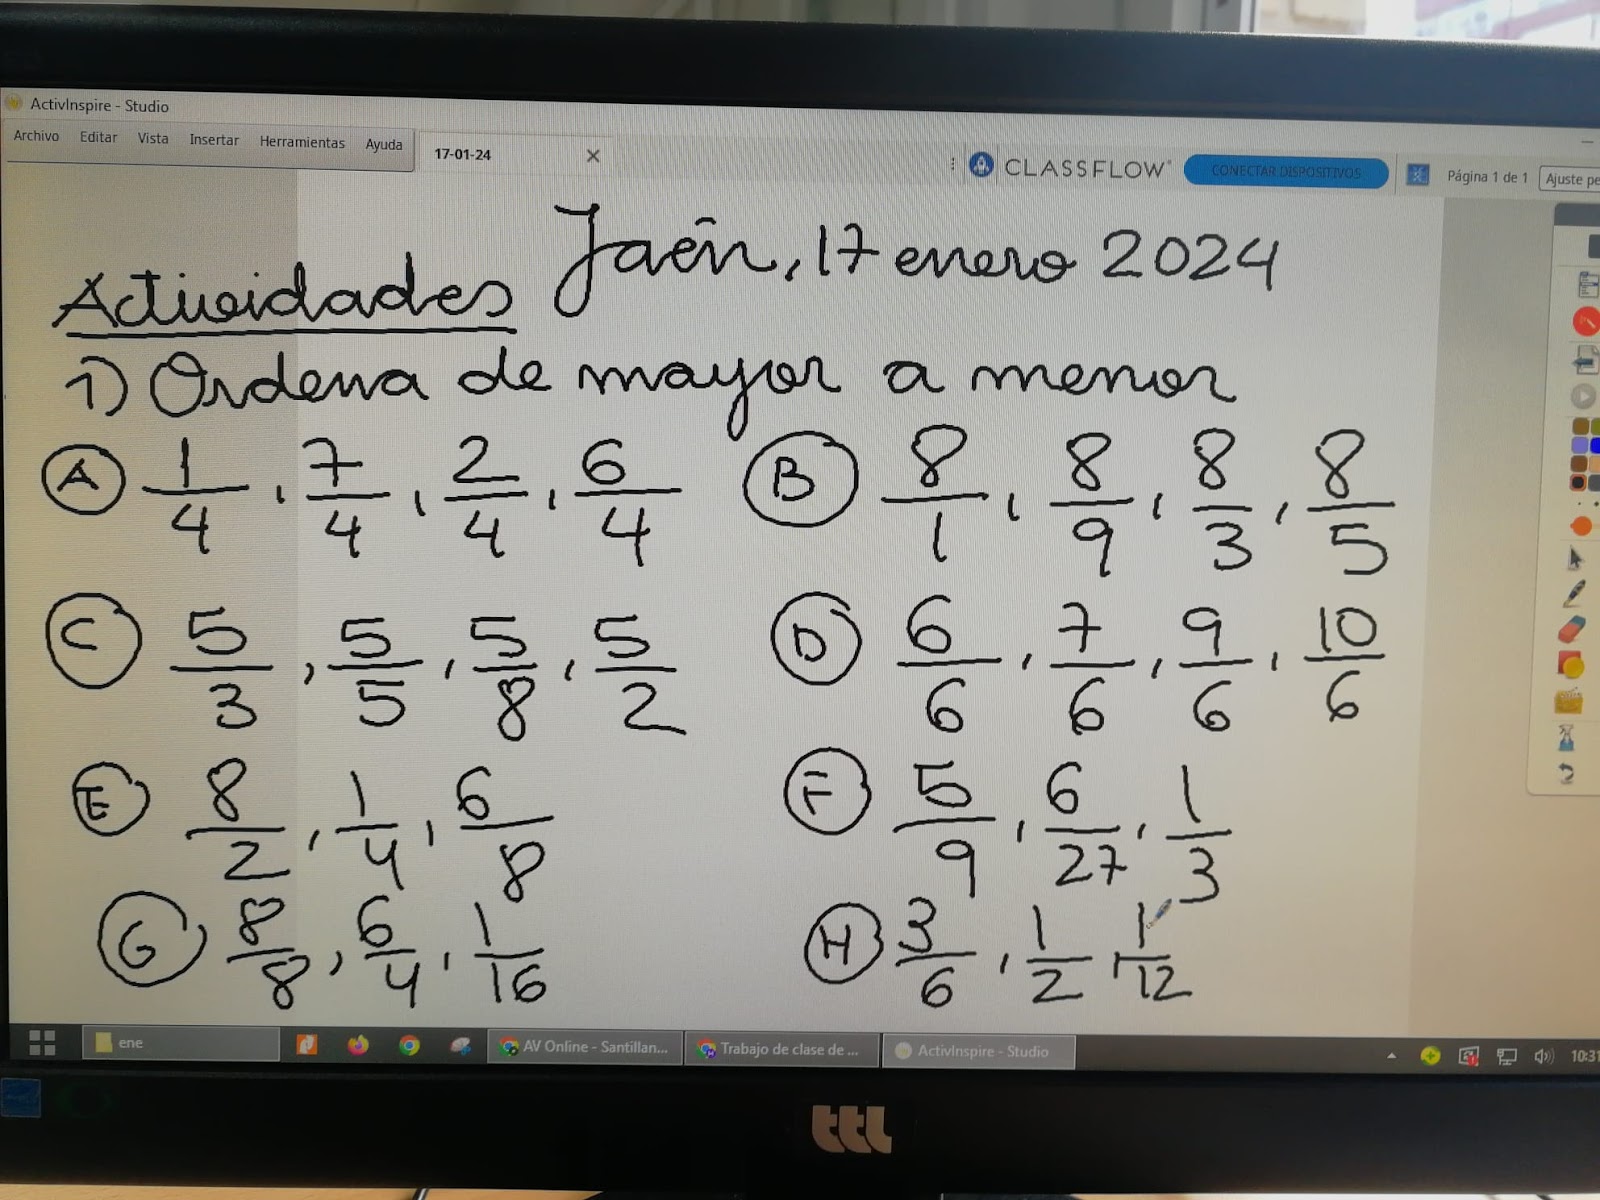 ActivInspire - Studio
Archivo Editar Vista Insertar Herramientas Ayuda
17-01-24
CLASSFLOW
CONECTAR DISPOSITIVOS
Página 1 de 1
Ajuste pe
Jaén, 17 enero 2024
Actividades
1) Ordena de mayor a menor
A 1/4, 7/4, 2/4, 6/4
B 8/1, 8/9, 8/3, 8/5
C 5/3, 5/5, 5/8, 5/2
D 6/6, 7/6, 9/6, 10/6
E 8/2, 1/4, 6/8
F 5/9, 6/27, 1/3
G 8/8, 6/4, 1/16
H 3/6, 1/2, 1/12
ene
AV Online - Santillan...
Trabajo de clase de ...
ActivInspire - Studio
10:31
ttl